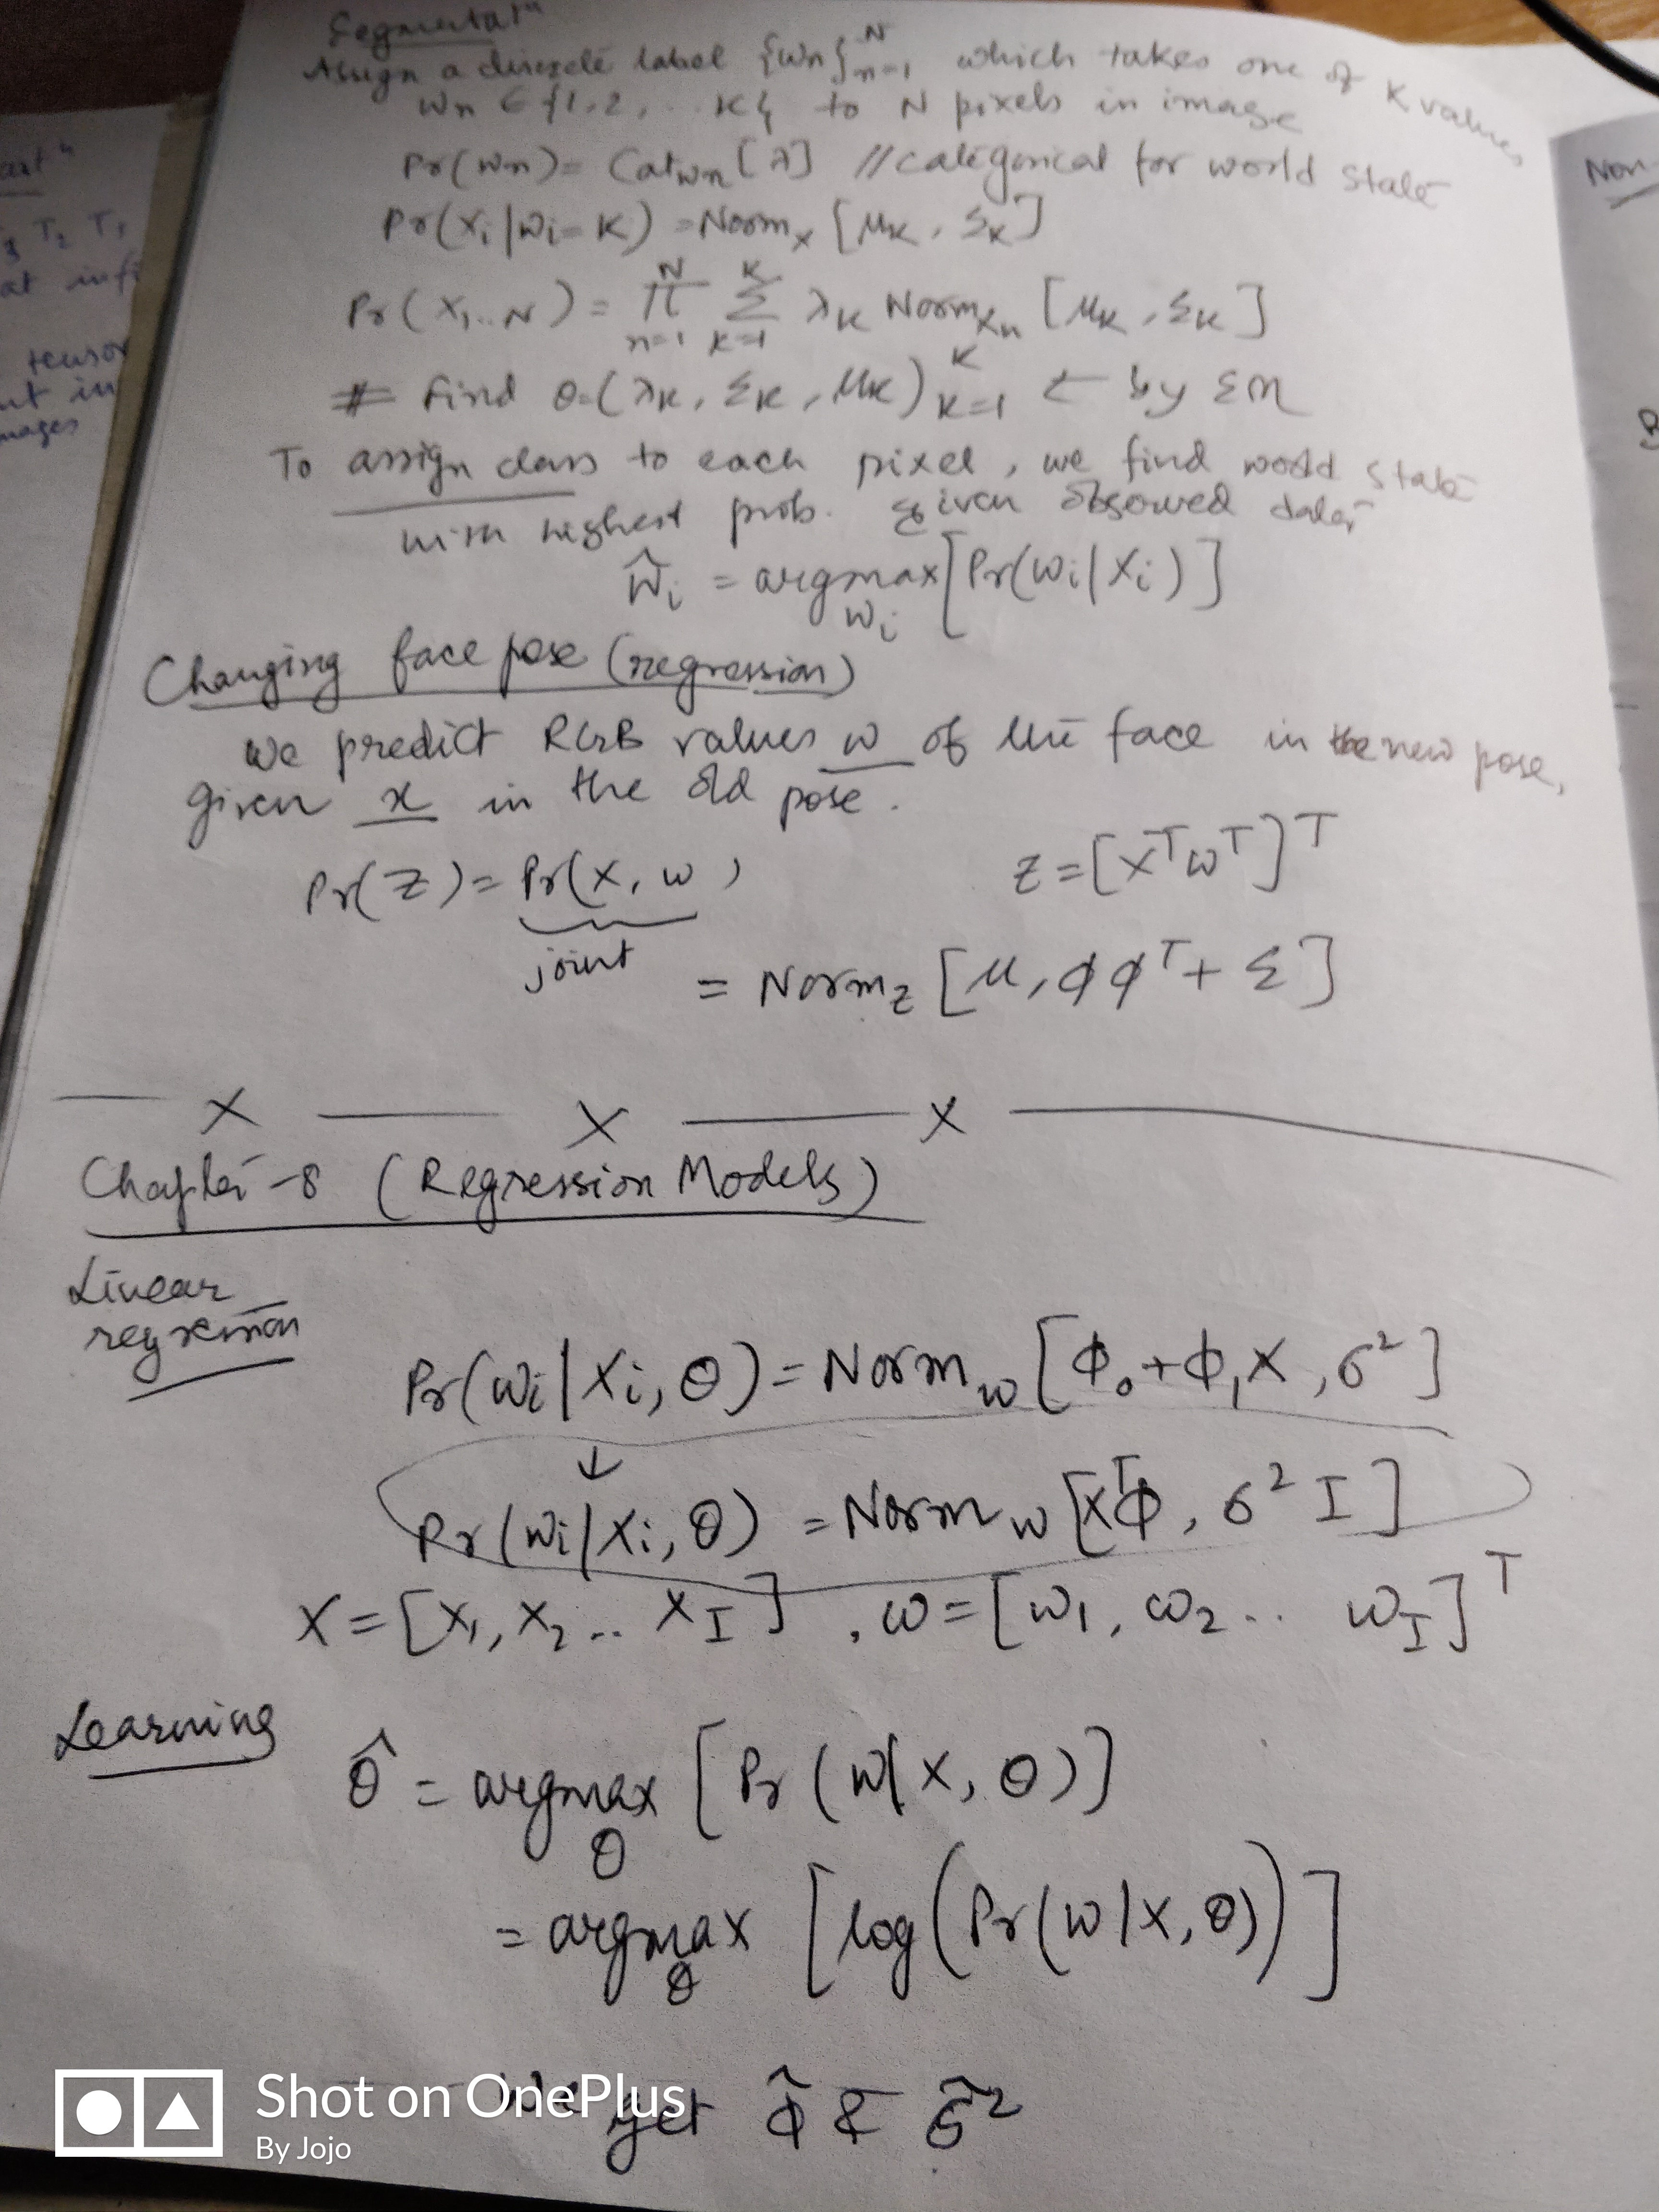 Segmentatⁿ
Assign a discrete label {wn}ᴺn=1 which takes one of K values
wn ∈ {1,2, ... K} to N pixels in image
Pr(wn) = Catwn [λ] //categorical for world state
Pr(xi|wi=K) = Normx [μK, ΣK]
Pr(x1...N) = Π^N n=1 Σ^K k=1 λK Normxn [μK, ΣK]
# Find θ=(λK, ΣK, μK)^K K=1 ← by EM
To assign class to each pixel, we find world state
with highest prob. given observed data,
ŵi = argmax wi [Pr(wi|xi)]
Changing face pose (regression)
we predict RGB values w of the face in the new pose,
given x in the old pose.
Pr(z) = Pr(x, w) z = [xᵀwᵀ]ᵀ
joint
= Normz [μ, ϕϕᵀ + Σ]
x x x
Chapter -8 (Regression Models)
Linear
regression
Pr(wi|xi, θ) = Normw [ϕ0 + ϕ1x, σ²]
↓
Pr(wi|xi, θ) = Normw [xᵀϕ, σ² I]
X = [x1, x2 .. xI], w = [w1, w2 .. wI]ᵀ
Learning
θ̂ = argmax θ [Pr(w|x, θ)]
= argmax θ [log(Pr(w|x, θ))]
We get ϕ̂ & σ̂²
Shot on OnePlus
By Jojo
at infi
T2 T1
tensor
ut in
mages
Non-
B